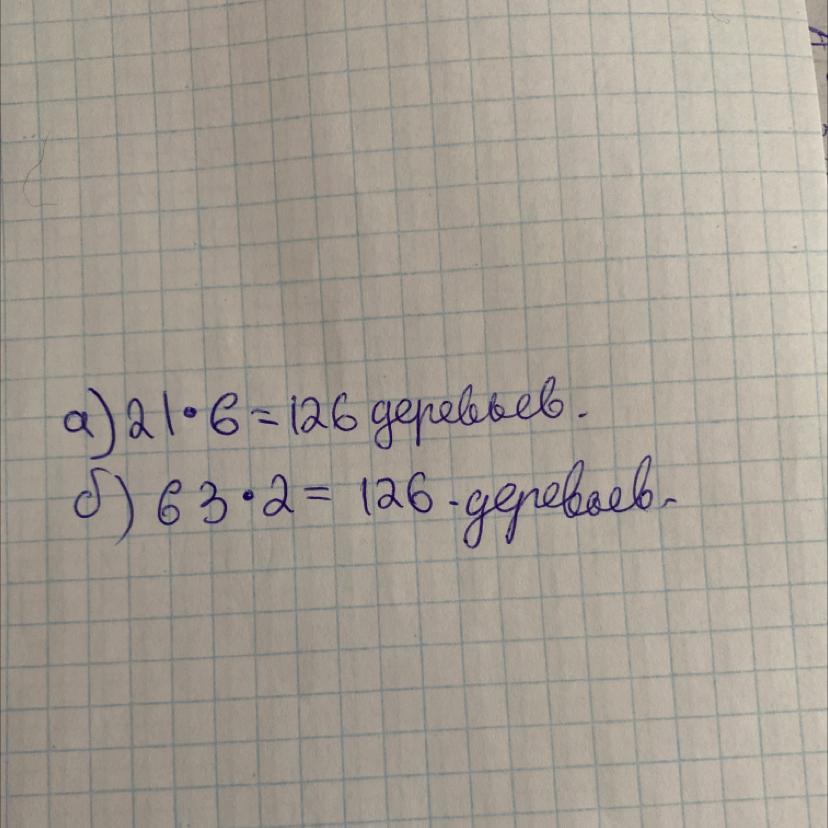 а) 21·6=126 деревьев.
б) 63·2= 126-деревьев.